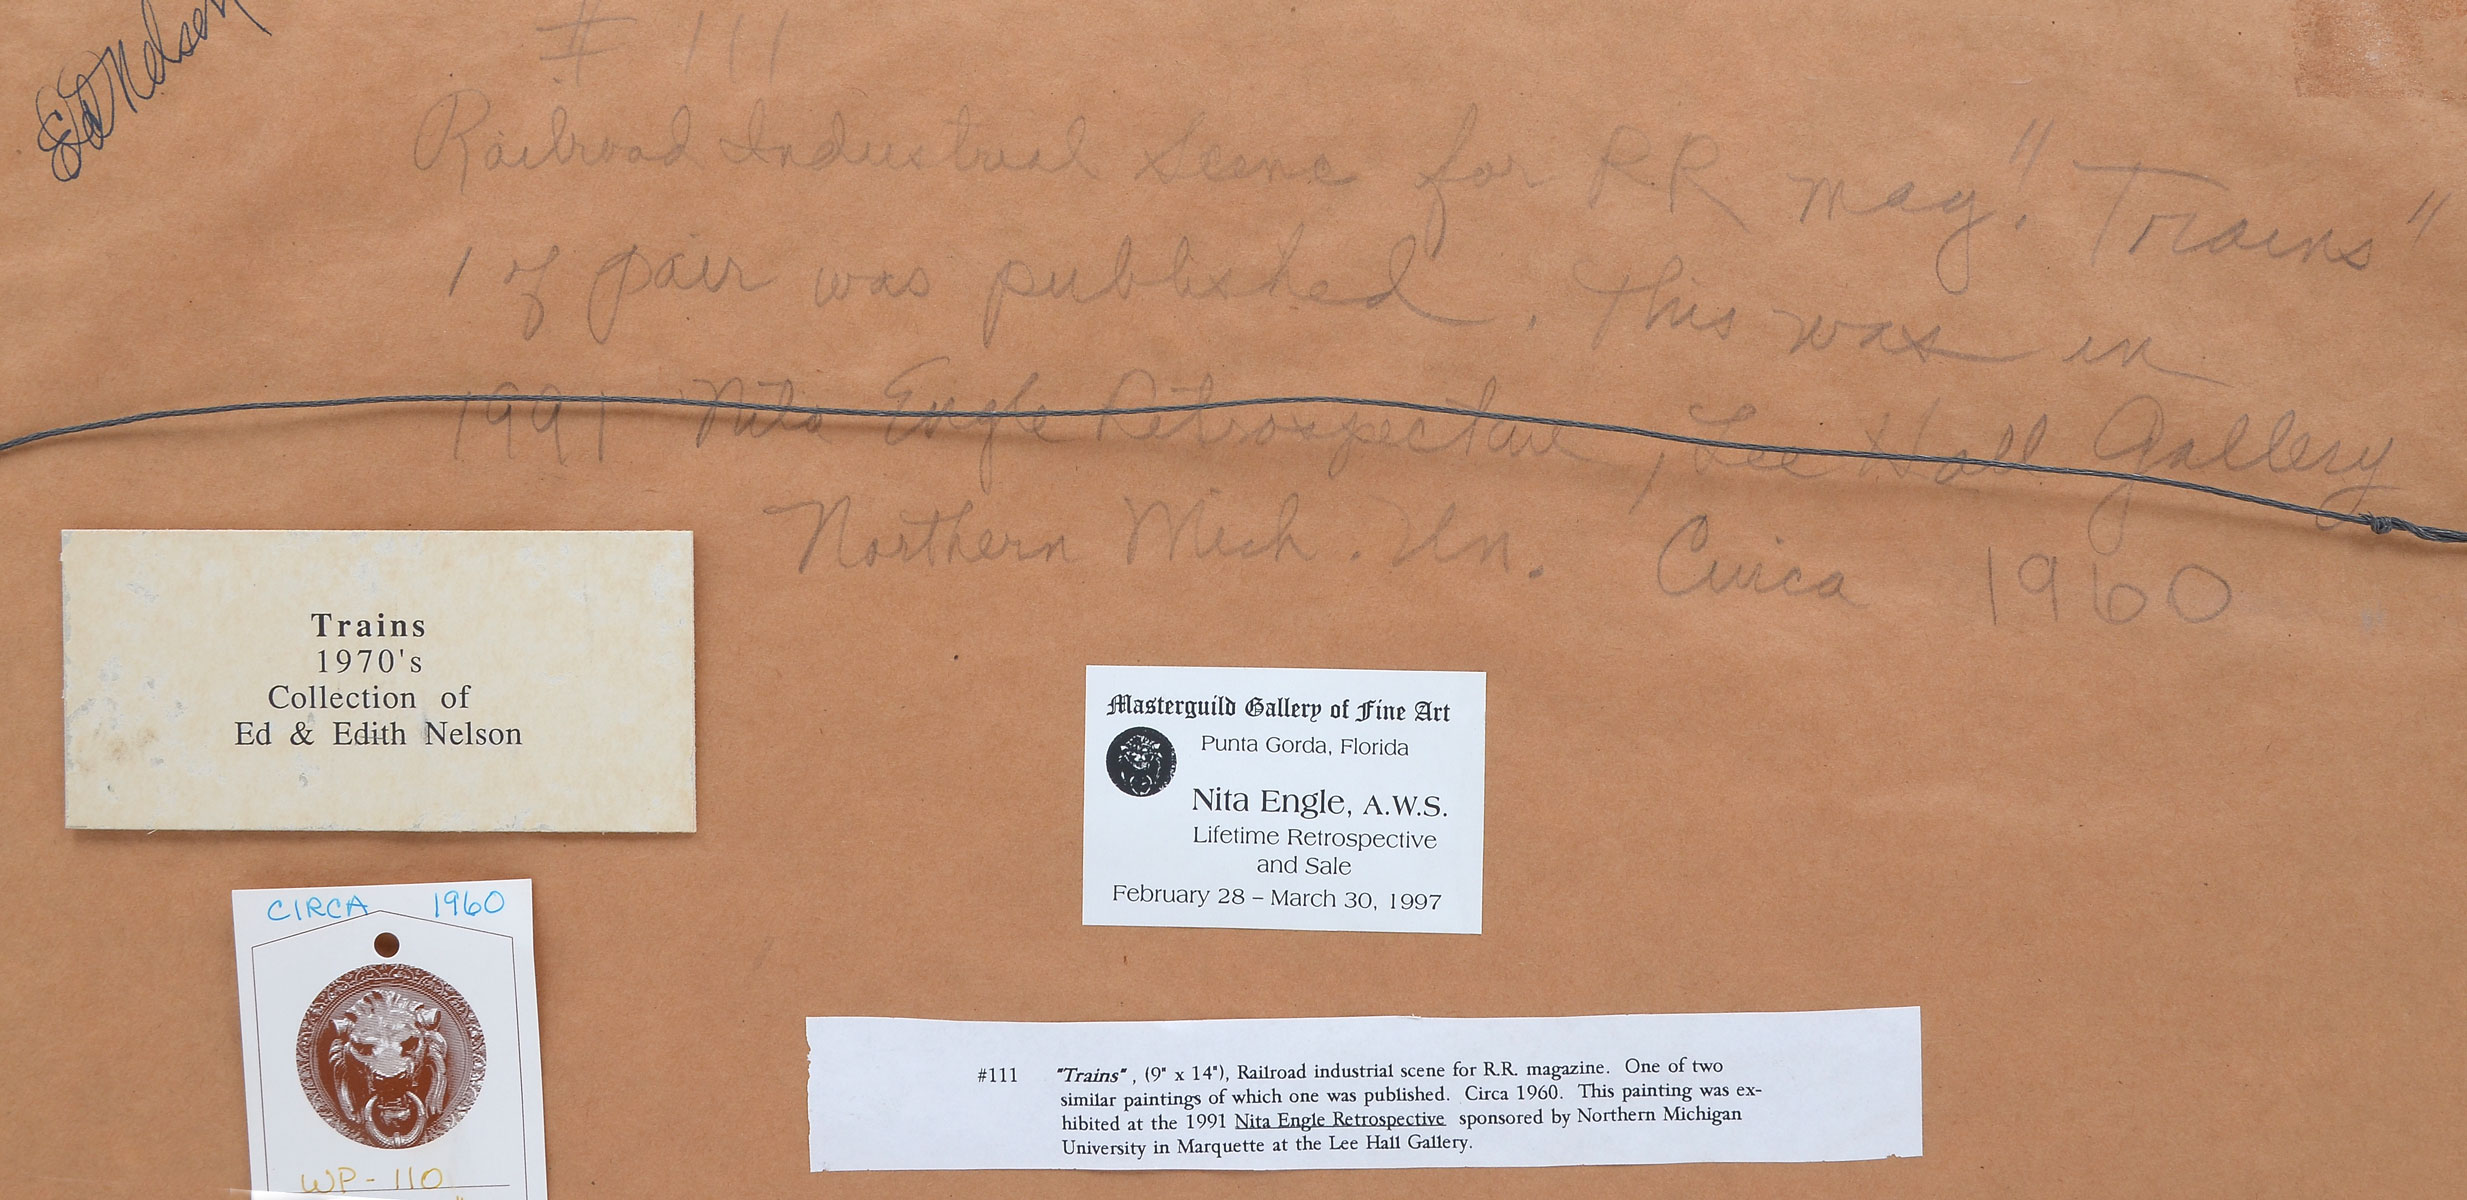 Ed Nelson
# 111
Railroad Industrial Scene for RR mag. "Trains"
1 of pair was published. This was in
1991 Nita Engle Retrospective, Lee Hall Gallery
Northern Mich. Un. Circa 1960
Trains
1970's
Collection of
Ed & Edith Nelson
Masterguild Gallery of Fine Art
Punta Gorda, Florida
Nita Engle, A.W.S.
Lifetime Retrospective
and Sale
February 28 – March 30, 1997
CIRCA 1960
WP-110
#111 "Trains", (9" x 14"), Railroad industrial scene for R.R. magazine. One of two
similar paintings of which one was published. Circa 1960. This painting was ex-
hibited at the 1991 Nita Engle Retrospective sponsored by Northern Michigan
University in Marquette at the Lee Hall Gallery.